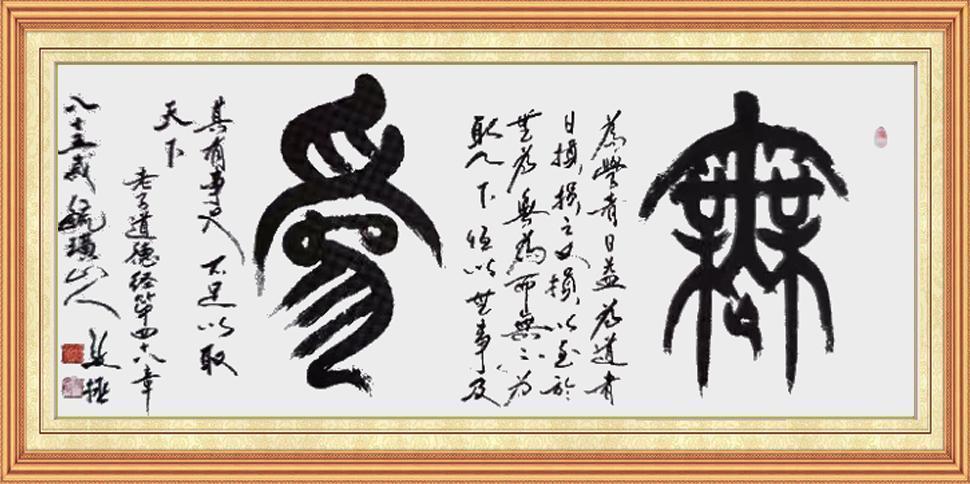 無
為學者日益為道者
日損損之又損以至於
無為無為而無不為
取天下恒以無事及
為
其有事又不足以取
天下
老子道德经第四十八章
八十五歲毓璜山人